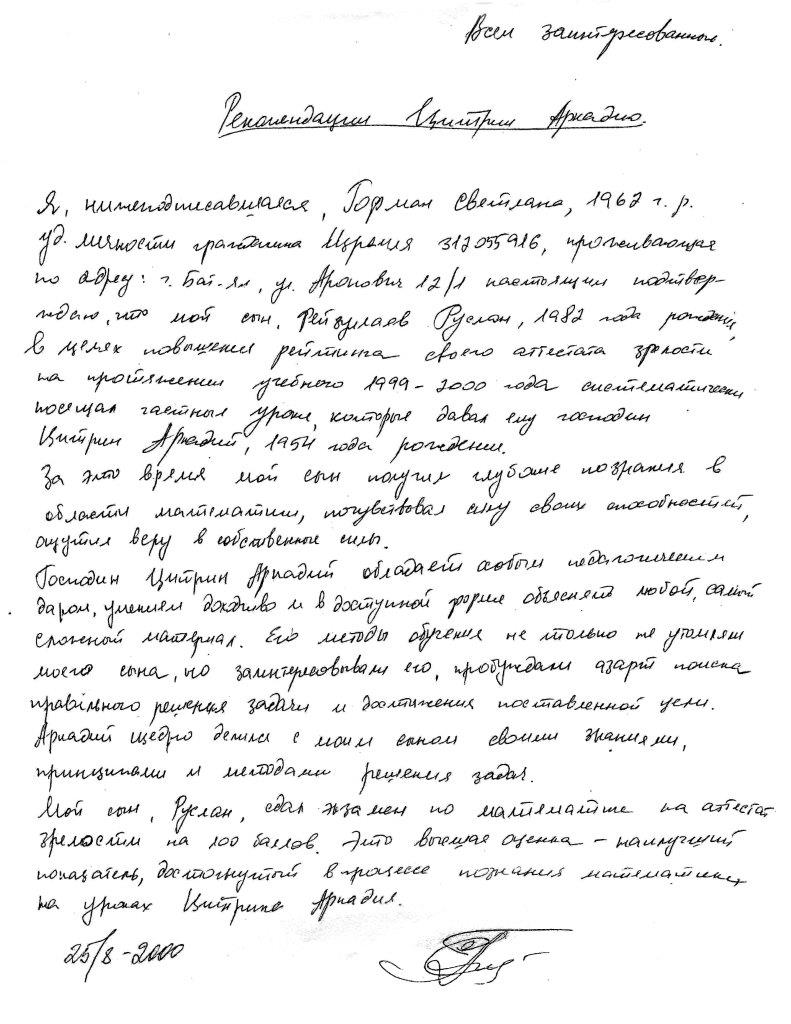 Всем заинтересованным.
Рекомендация Цитрин Аркадию.
Я, нижеподписавшаяся, Горман Светлана, 1962 г. р.
уд. личности гражданина Израиля 312055916, проживающая
по адресу: г. Бат-Ям, ул. Аронович 12/1 настоящим подтвер-
ждаю, что мой сын, Фейзулаев Руслан, 1982 года рождения,
в целях повышения рейтинга своего аттестата зрелости
на протяжении учебного 1999-2000 года систематически
посещал частные уроки, которые давал ему господин
Цитрин Аркадий, 1954 года рождения.
За это время мой сын получил глубокие познания в
области математики, почувствовал силу своих способностей,
ощутил веру в собственные силы.
Господин Цитрин Аркадий обладает особым педагогическим
даром, умением доходчиво и в доступной форме объяснять любой, самый
сложный материал. Его методы обучения не только не утомляли
моего сына, но заинтересовывали его, пробуждали азарт поиска
правильного решения задачи и достижения поставленной цели.
Аркадий щедро делился с моим сыном своими знаниями,
принципами и методами решения задач.
Мой сын, Руслан, сдал экзамен по математике на аттестат
зрелости на 100 баллов. Это высшая оценка – наилучший
показатель, достигнутый в процессе познания математики
на уроках Цитрина Аркадия.
25/8-2000